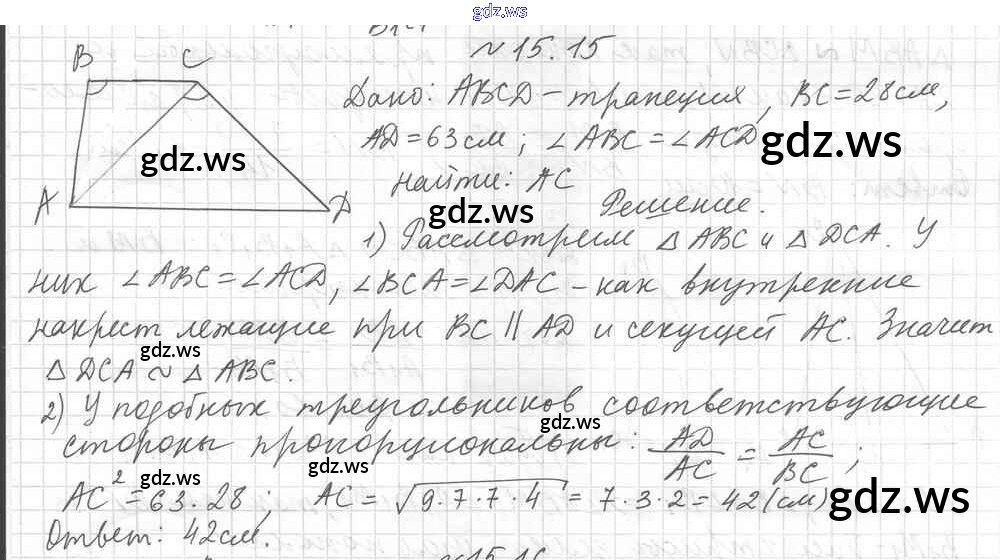 gdz.ws
№ 15.15
B C
Дано: ABCD – трапеция, BC = 28 см,
gdz.ws
AD = 63 см; ∠ABC = ∠ACD
gdz.ws
A D
найти: AC
gdz.ws
Решение.
1) Рассмотрим △ ABC и △ DCA. У
них ∠ABC = ∠ACD, ∠BCA = ∠DAC – как внутренние
накрест лежащие при BC || AD и секущей AC. Значит
gdz.ws
△ DCA ~ △ ABC.
2) У подобных треугольников соответствующие
gdz.ws
стороны пропорциональны: AD/AC = AC/BC;
gdz.ws gdz.ws
AC² = 63·28; AC = √9·7·7·4 = 7·3·2 = 42 (см)
gdz.ws
Ответ: 42см.